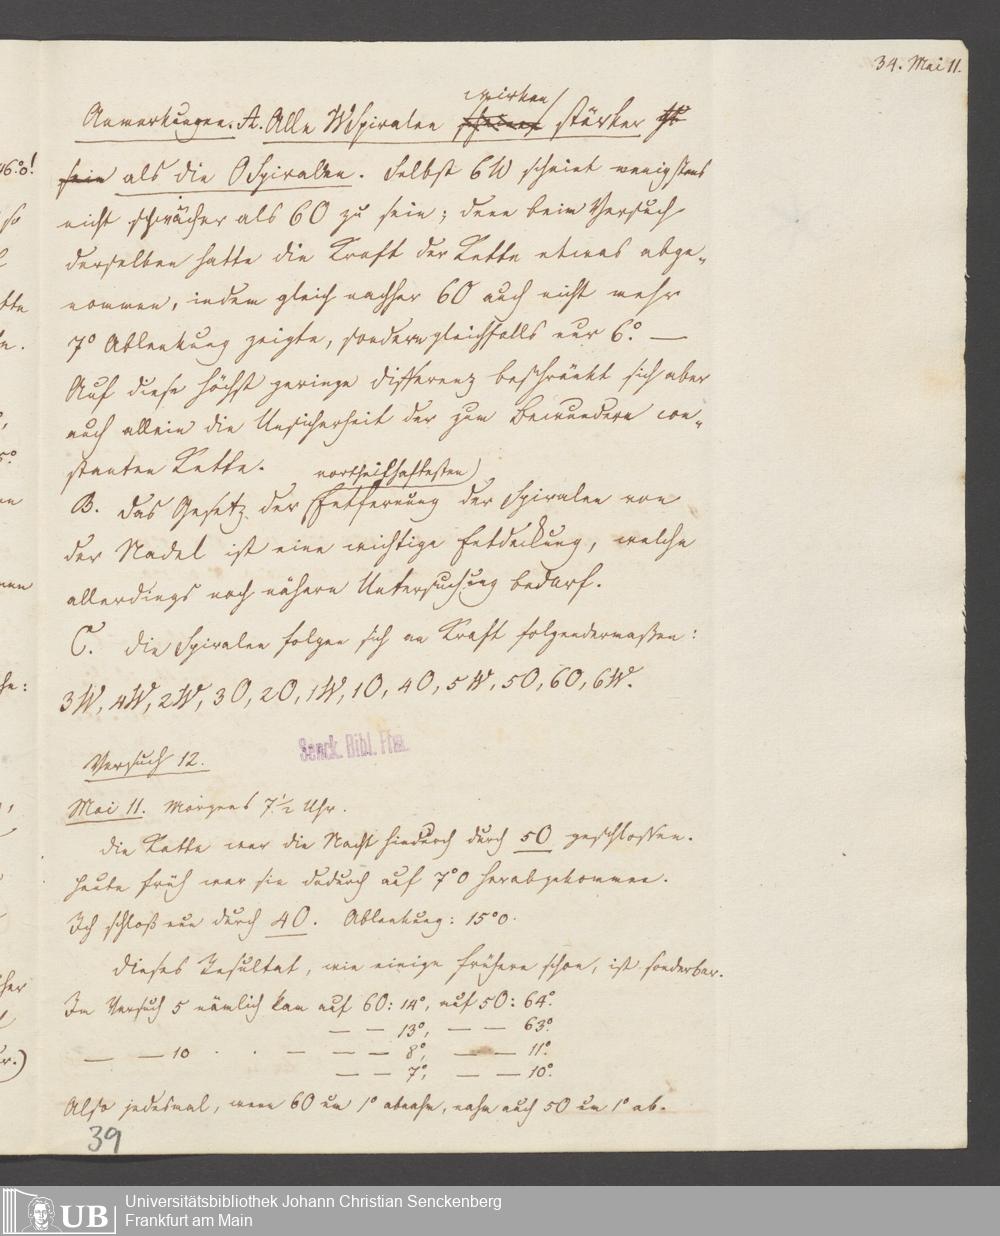 34. Mai 11.
Anmerkungen. A. Alle WSpiralen wirken stärker
sein als die OSpiralen. Selbst 6W scheint wenigstens
nicht schwächer als 6O zu sein; denn beim Versuch
derselben hatte die Kraft der Kette etwas abge-
nommen, indem gleich nachher 6O auch nicht mehr
7° Ablenkung zeigte, sondern gleichfalls nur 6°. —
Auf diese höchst geringe Differenz beschränkt sich aber
auch allein die Unsicherheit der zum Bewundern con-
stanten Kette.
B. Das Gesetz der vortheilhaftesten Entfernung der Spiralen von
der Nadel ist eine wichtige Entdeckung, welche
allerdings noch nähern Untersuchung bedarf.
C. Die Spiralen folgen sich an Kraft folgendermaßen:
3W, 4W, 2W, 3O, 2O, 1W, 1O, 4O, 5W, 5O, 6O, 6W.
Senck. Bibl. Ffm.
Versuch 12.
Mai 11. Morgens 7 1/2 Uhr.
Die Kette war die Nacht hindurch durch 5O geschlossen.
Heute früh war sie dadurch auf 7°0 herabgekommen.
Ich schloß nun durch 4O. Ablenkung: 15°0.
Dieses Resultat, wie einige frühere schon, ist sonderbar.
Im Versuch 5 nämlich kam auf 6O: 14°, auf 5O: 64°.
— — 13°, — — 63°.
— — 10 . . — — — 8°, — — 11°.
— — 7°, — — 10°.
Also jedesmal, wenn 6O um 1° abnahm, nahm auch 5O um 1° ab.
39
UB
Universitätsbibliothek Johann Christian Senckenberg
Frankfurt am Main